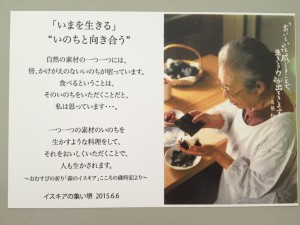 「いまを生きる」
“いのちと向き合う”
自然の素材の一つ一つには、
皆、かけがえのないいのちが宿っています。
食べるということは、
そのいのちをいただくことだと、
私は思っています・・・。
一つ一つの素材のいのちを
生かすような料理をして、
それをおいしくいただくことで、
人も生かされます。
～おむすびの祈り「森のイスキア」こころの歳時記より～
イスキアの集い堺 2015.6.6
「おいしい」と感じることで、
生きる力が出てきます